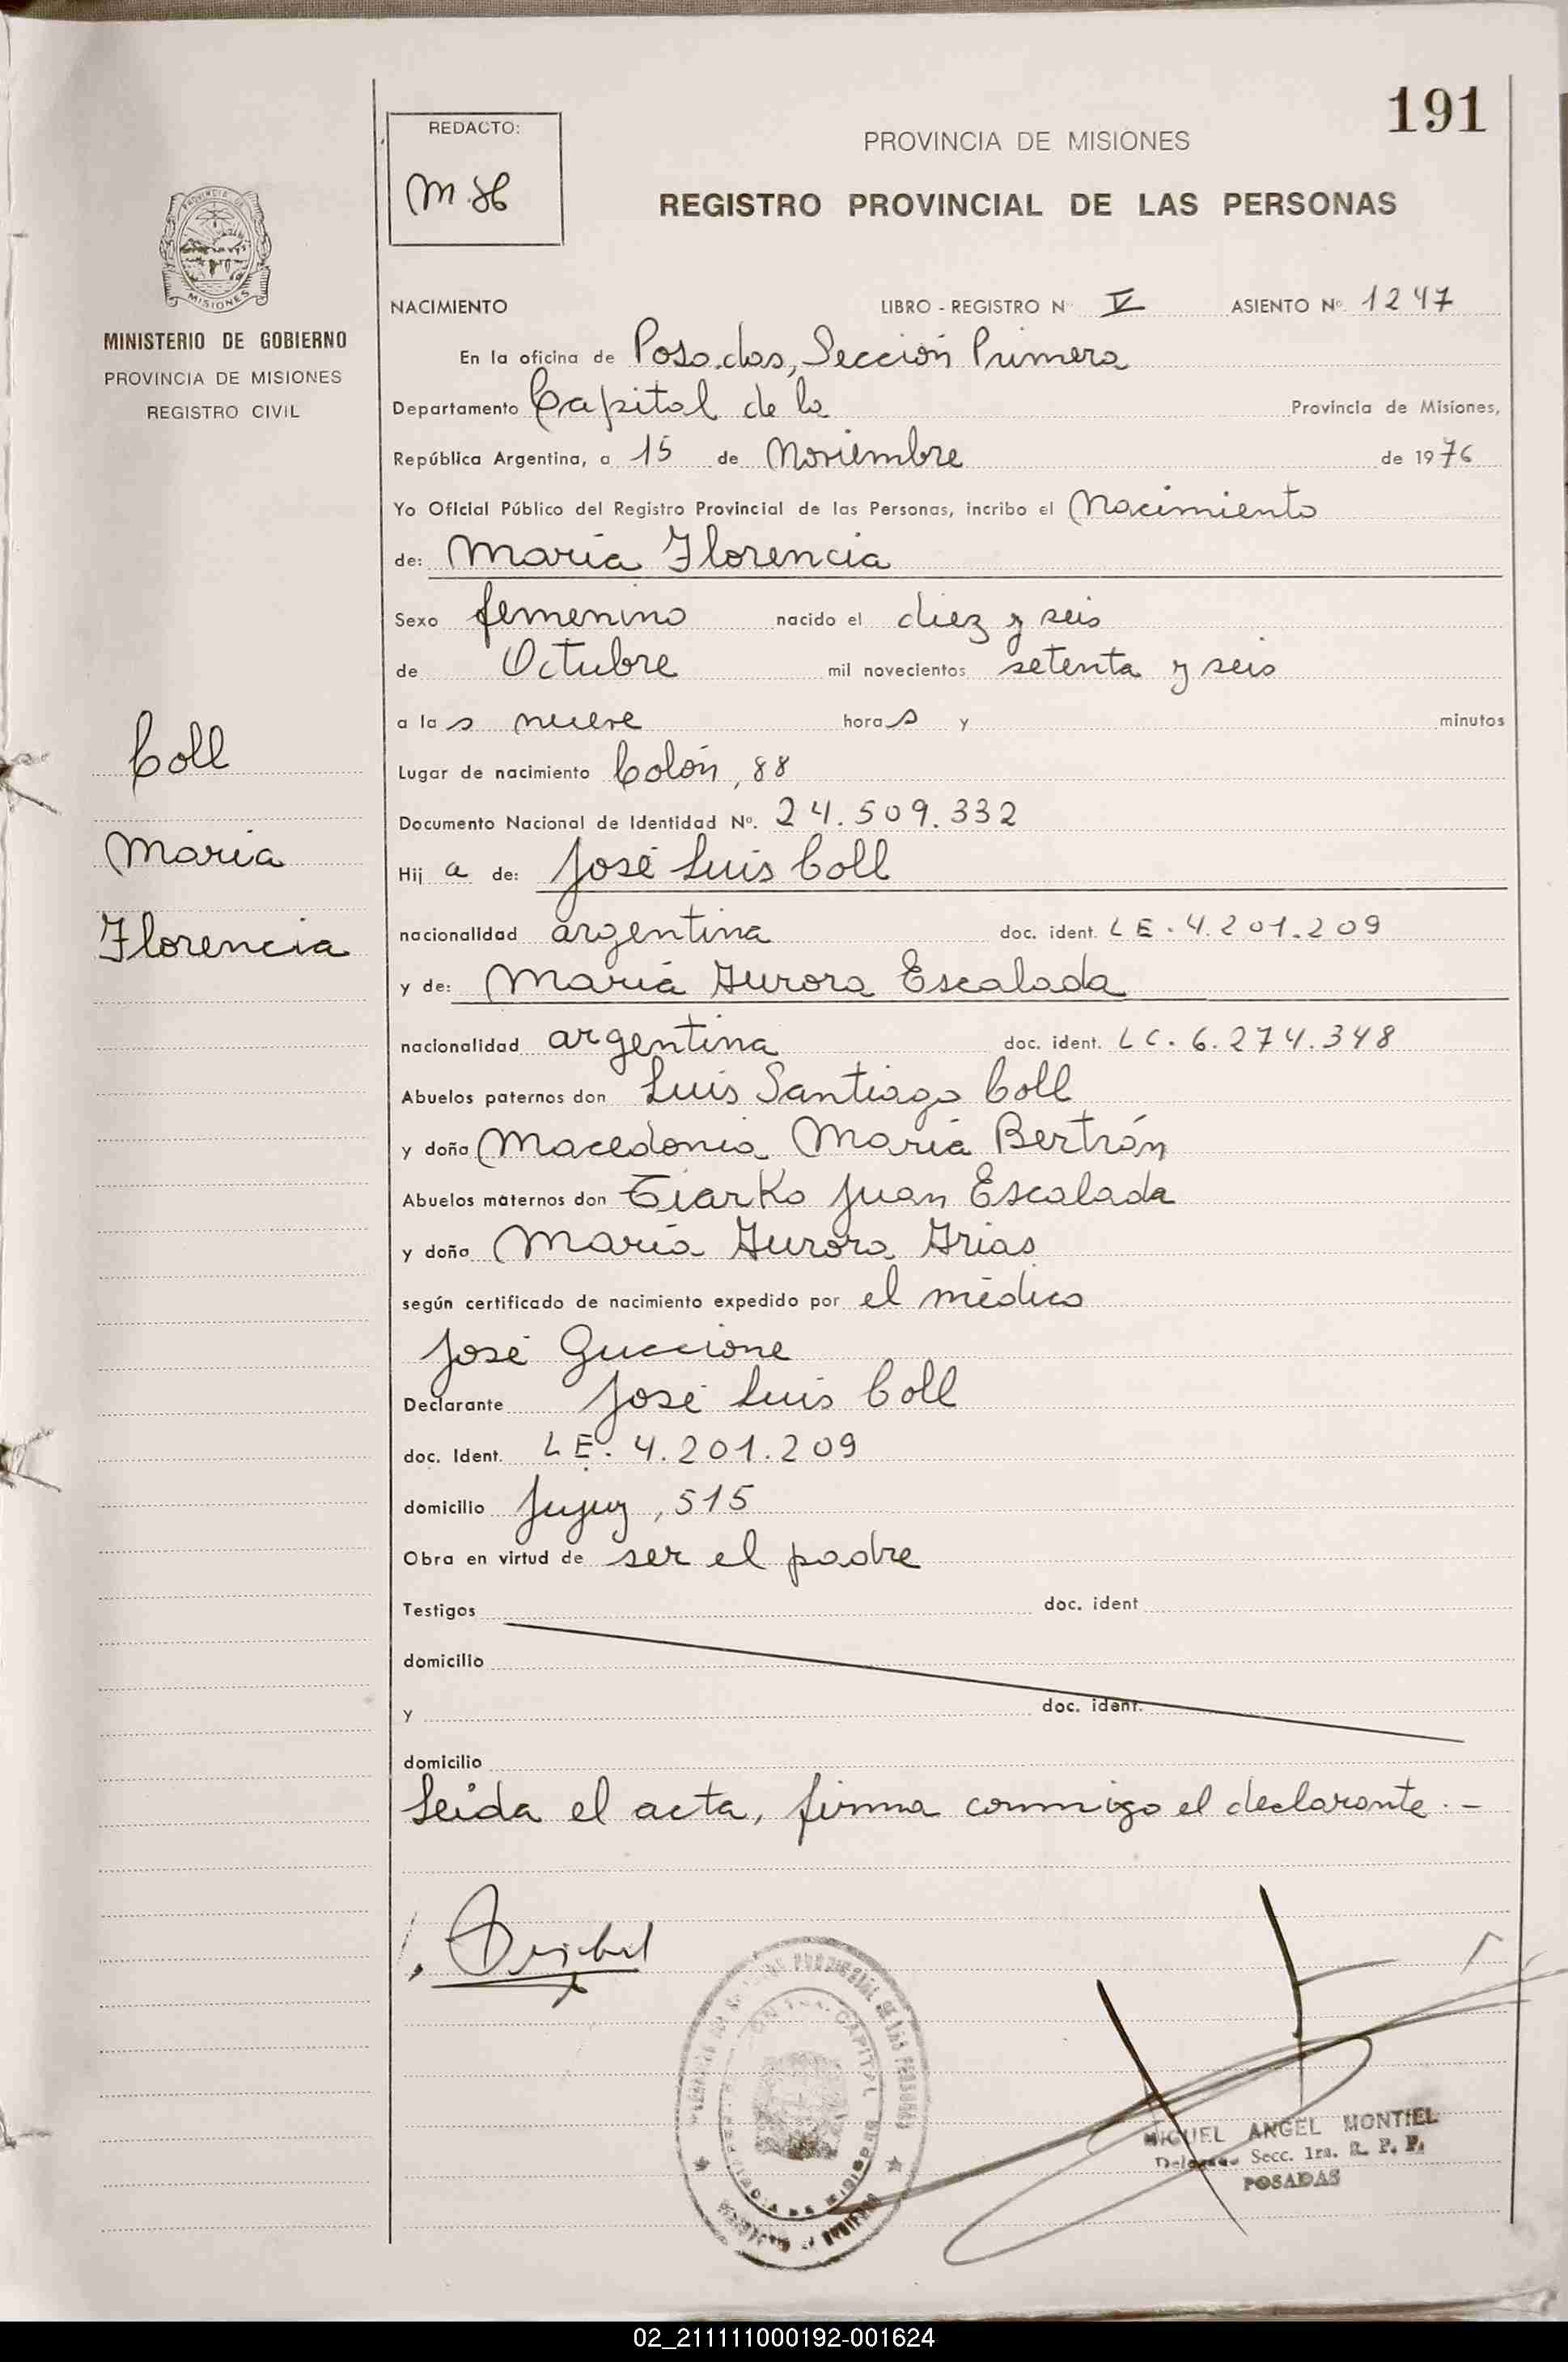 191
REDACTO:
PROVINCIA DE MISIONES
REGISTRO PROVINCIAL DE LAS PERSONAS
PROVINCIA DE
MISIONES
MINISTERIO DE GOBIERNO
PROVINCIA DE MISIONES
REGISTRO CIVIL
Coll
Maria
Florencia
NACIMIENTO LIBRO - REGISTRO Nº V ASIENTO Nº 1247
En la oficina de Posadas, Sección Primera
Departamento Capital de la Provincia de Misiones,
República Argentina, a 15 de Noviembre de 1976
Yo Oficial Público del Registro Provincial de las Personas, incribo el Nacimiento
de: María Florencia
Sexo femenino nacido el diez y seis
de Octubre mil novecientos setenta y seis
a las nueve horas y minutos
Lugar de nacimiento Colón, 88
Documento Nacional de Identidad Nº. 24.509.332
Hija de: José Luis Coll
nacionalidad argentina doc. ident. LE. 4.201.209
y de: María Aurora Escalada
nacionalidad argentina doc. ident. LC. 6.274.348
Abuelos paternos don Luis Santiago Coll
y doña Macedonia María Bertrán
Abuelos maternos don Tiarko Juan Escalada
y doña María Aurora Arias
según certificado de nacimiento expedido por el médico
José Guccione
Declarante José Luis Coll
doc. Ident. LE. 4.201.209
domicilio Jujuy, 515
Obra en virtud de ser el padre
Testigos doc. ident
domicilio
y doc. ident.
domicilio
Leída el acta, firma conmigo el declarante.-
MIGUEL ANGEL MONTIEL
Delegado Secc. 1ra. R. P. P.
POSADAS
02_211111000192-001624